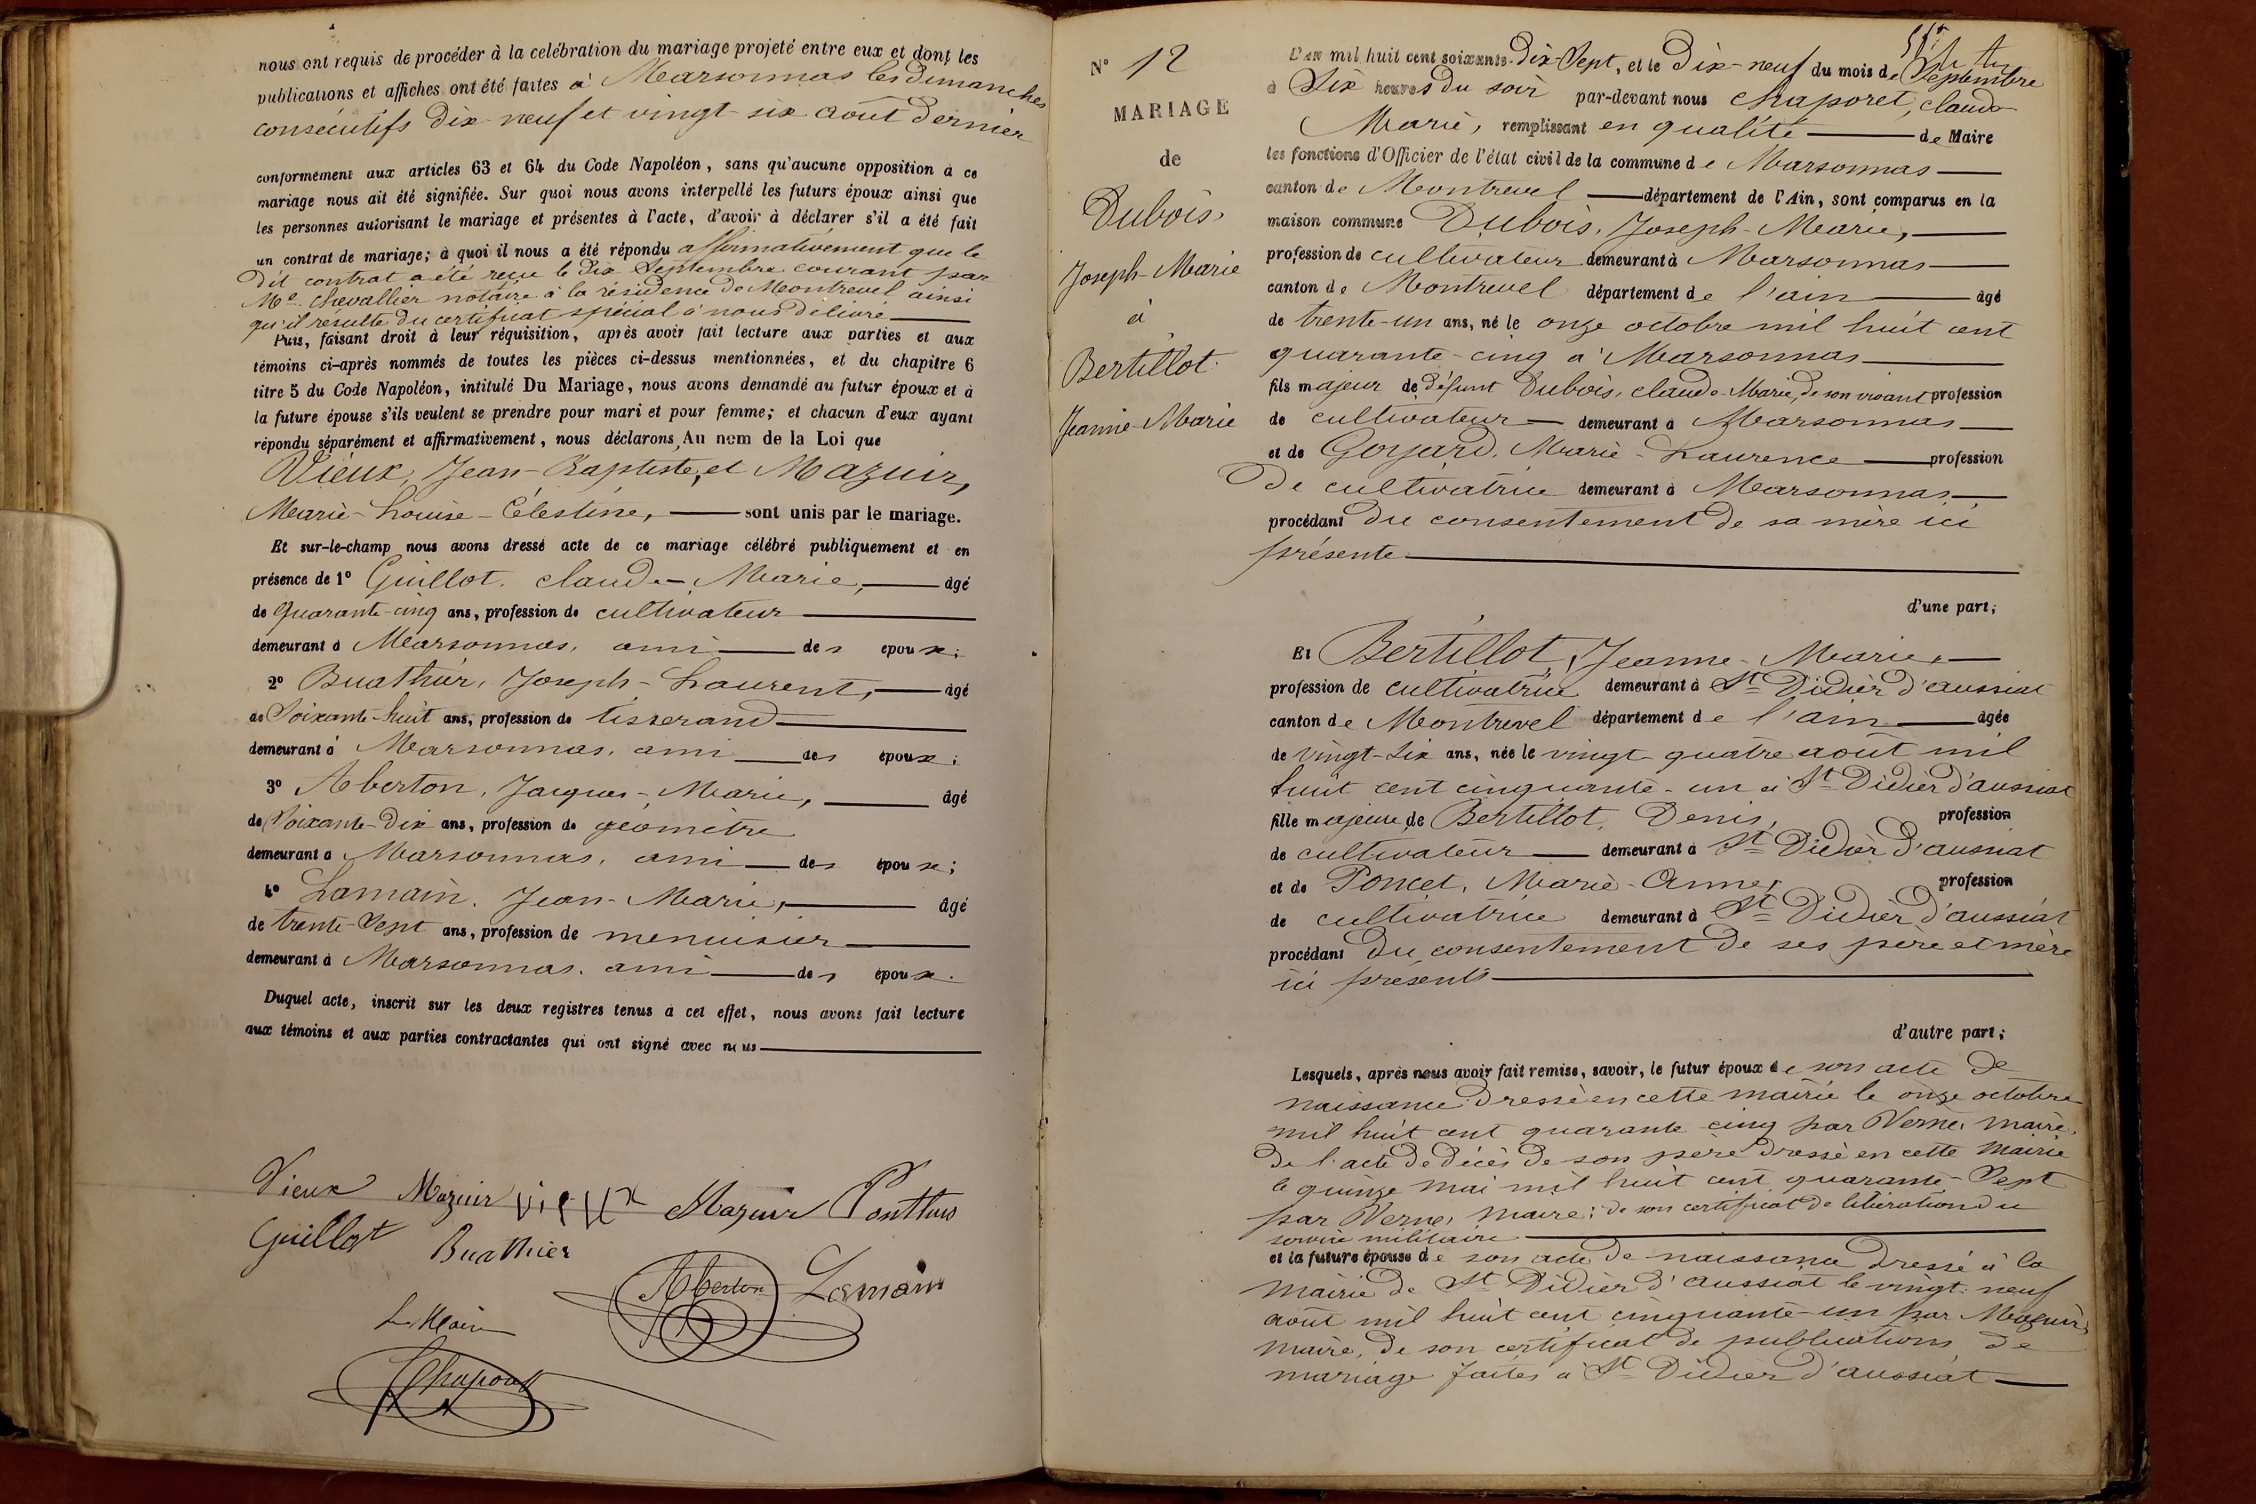 nous ont requis de procéder à la celébration du mariage projeté entre eux et dont les
publications et affiches ont été faites à Marsonnas les dimanches
consécutifs dix-neuf et vingt-six août dernier
conformément aux articles 63 et 64 du Code Napoléon, sans qu'aucune opposition à ce
mariage nous ait été signifiée. Sur quoi nous avons interpellé les futurs époux ainsi que
les personnes autorisant le mariage et présentes à l'acte, d'avoir à déclarer s'il a été fait
un contrat de mariage; à quoi il nous a été répondu affirmativement que le
dit contrat a été reçu le dix Septembre courant par
Me Chevallier notaire à la résidence de Montrevel ainsi
qu'il résulte du certificat spécial à nous délivré
Puis, faisant droit à leur réquisition, après avoir fait lecture aux parties et aux
témoins ci-après nommés de toutes les pièces ci-dessus mentionnées, et du chapitre 6
titre 5 du Code Napoléon, intitulé Du Mariage, nous avons demandé au futur époux et à
la future épouse s'ils veulent se prendre pour mari et pour femme; et chacun d'eux ayant
répondu séparément et affirmativement, nous déclarons Au nom de la Loi que
Vieux, Jean-Baptiste, et Mazuir,
Marie-Louise-Célestine, sont unis par le mariage.
Et sur-le-champ nous avons dressé acte de ce mariage célébré publiquement et en
présence de 1° Guillot, claude-Marie, âgé
de Quarante-cinq ans, profession de cultivateur
demeurant à Marsonnas, ami des epoux;
2° Buathier, Joseph-Laurent, âgé
de Soixante-huit ans, profession de tisserand
demeurant à Marsonnas, ami des époux;
3° Aberton, Jacques-Marie, âgé
de Soixante-dix ans, profession de géomètre
demeurant à Marsonnas, ami des époux;
4° Lamain, Jean-Marie, âgé
de trente-Sept ans, profession de menuisier
demeurant à Marsonnas, ami des époux.
Duquel acte, inscrit sur les deux registres tenus à cet effet, nous avons fait lecture
aux témoins et aux parties contractantes qui ont signé avec nous
Vieux Mazuir Vieux Mazuir Ponthus
Guillot Buathier
Aberton Lamain
Le Maire
Chaporet
N° 12
MARIAGE
de
Dubois,
Joseph-Marie
à
Bertillot
Jeanne-Marie
L'an mil huit cent soixante-dix-Sept, et le Dix-neuf du mois de Septembre
à Six heures du soir par-devant nous Chaporet, claude
Marie, remplissant en qualité de Maire
les fonctions d'Officier de l'état civil de la commune de Marsonnas
canton de Montrevel département de l'Ain, sont comparus en la
maison commune Dubois, Joseph-Marie,
profession de cultivateur demeurant à Marsonnas
canton de Montrevel département de l'ain âgé
de trente-un ans, né le onze octobre mil huit cent
quarante-cinq à Marsonnas
fils majeur de défunt Dubois, claude-Marie, de son vivant profession
de cultivateur demeurant à Marsonnas
et de Goyard, Marie-Laurence profession
de cultivatrice demeurant à Marsonnas
procédant du consentement de sa mère ici
présente
d'une part;
Et Bertillot, Jeanne-Marie,
profession de cultivatrice demeurant à St Didier d'aussiat
canton de Montrevel département de l'ain âgée
de vingt-Six ans, née le vingt-quatre août mil
huit cent cinquante-un à St Didier d'aussiat
fille majeure de Bertillot, Denis, profession
de cultivateur demeurant à St Didier d'aussiat
et de Poncet, Marie-Anne, profession
de cultivatrice demeurant à St Didier d'aussiat
procédant du consentement de ses père et mère
ici présents
d'autre part;
Lesquels, après nous avoir fait remise, savoir, le futur époux de son acte de
naissance dressé en cette mairie le onze octobre
mil huit cent quarante-cinq par Verne, maire,
de l'acte de décès de son père dressé en cette Mairie
le quinze mai mil huit cent quarante-Sept
par Verne, maire; de son certificat de libération du
service militaire
et la future épouse de son acte de naissance dressé à la
mairie de St Didier d'aussiat le vingt-neuf
août mil huit cent cinquante-un par Mazuir,
maire, de son certificat de publications de
mariage faites à St Didier d'aussiat